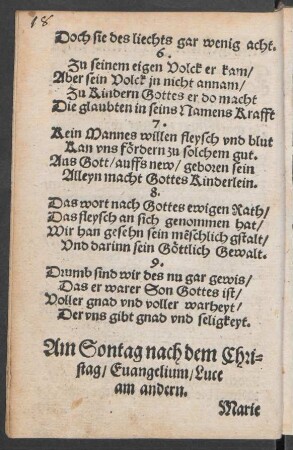 18
Doch sie des liechts gar wenig acht.
6.
Zu seinem eigen Volck er kam/
Aber sein Volck jn nicht annam/
Zu Kindern Gottes er do macht
Die glaubten in seins Namens Krafft
7.
Kein Mannes willen fleysch vnd blut
Kan vns fördern zu solchem gut.
Aus Gott/ auffs new/ geboren sein
Alleyn macht Gottes Kinderlein.
8.
Das wort nach Gottes ewigen Rath/
Das fleysch an sich genommen hat/
Wir han gesehn sein mẽschlich gstalt/
Vnd darinn sein Göttlich Gewalt.
9.
Drumb sind wir des nu gar gewis/
Das er warer Son Gottes ist/
Voller gnad vnd voller warheyt/
Der vns gibt gnad vnd seligkeyt.
Am Sontag nach dem Chri-
stag/ Euangelium/ Luce
am andern.
Marie